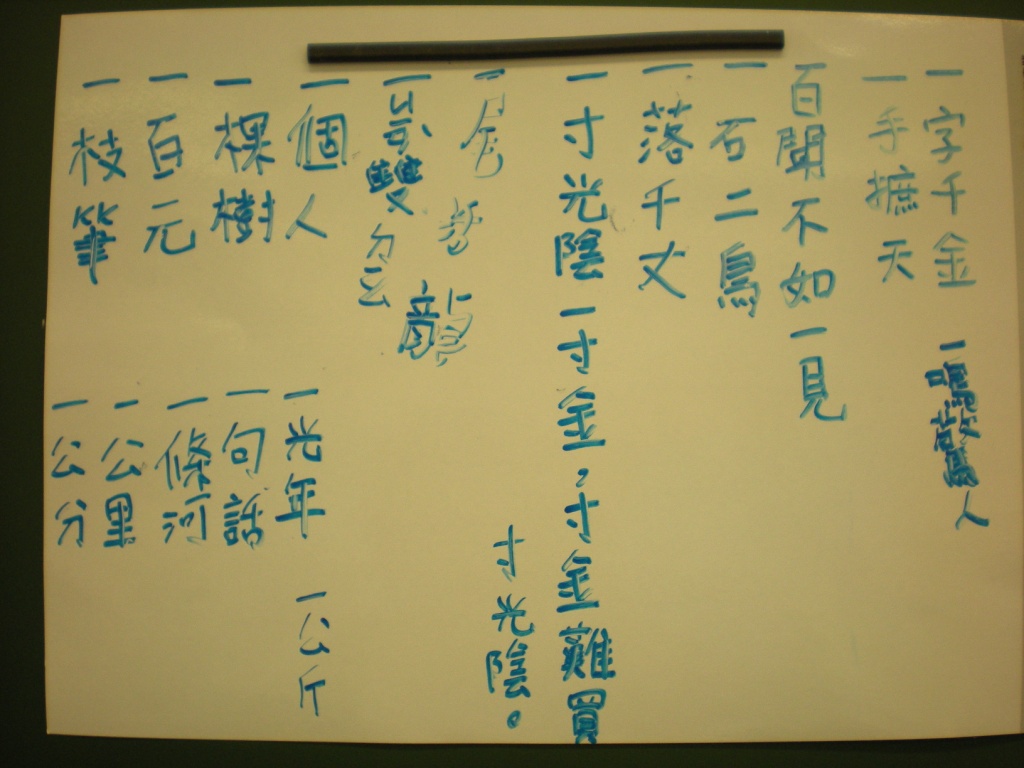 一字千金
一鳴驚人
一手摭天
百聞不如一見
一石二鳥
一落千丈
一寸光陰一寸金，寸金難買
寸光陰。
一 龍
一 雙
一個人
一棵樹
一百元
一枝筆
一光年
一公斤
一句話
一條河
一公里
一公分